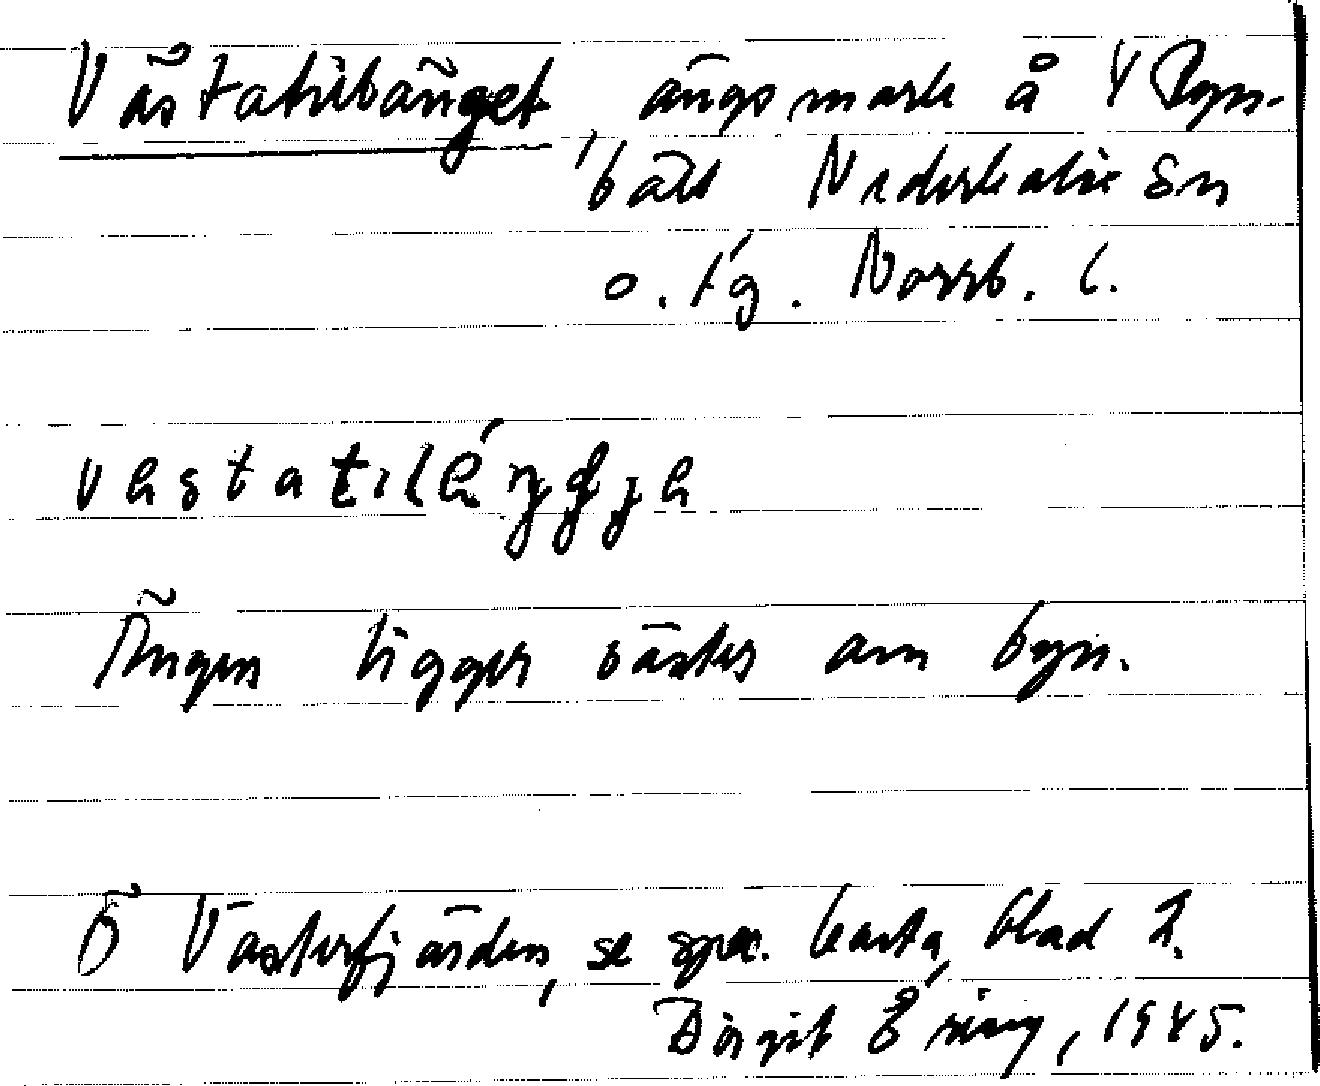 Västatilbänget, ängsmark å Y Byn,
båld Nederkalix sn
o. tg. Norrb. l.
västatiläŋgjä
Ängen ligger väster om byn.
Ö Västerfjärden, se spec. karta, blad 2.
Birgit Öring, 1945.